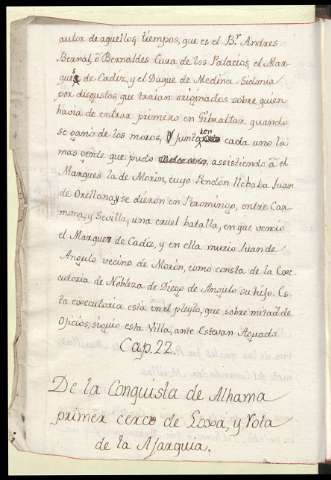 autor de aquellos tiempos, que es el B.r Andres
Bernal, ô Bernaldes Cura de los Palacios, el Mar-
ques de Cadiz, y el Duque de Medina Sidonia
por disgustos que traian originados sobre quien
havia de entrar primero en Gibraltar quando
se ganò de los moros, y juntaron cada uno la
mas gente que pudo assistiendo â el
Marques la de Moròn, cuyo Pendòn llebaba Juan
de Orellana, y se dieròn en Peromingo, entre Car-
mona, y Sevilla, una cruel batalla, en que venciò
el Marques de Cadiz, y en ella murio Juan de
Angulo vecino de Moròn, como consta de la Exe-
cutoria de Nobleza de Diego de Angulo su hijo. Es-
ta executoria esta en el pleyto, que sobre mitad de
Oficios, siguio esta Villa, ante Estevan Aguado
Cap. 22.
De la Conquista de Alhama
primer cerco de Loxa, y Rota
de la Ajarquia.